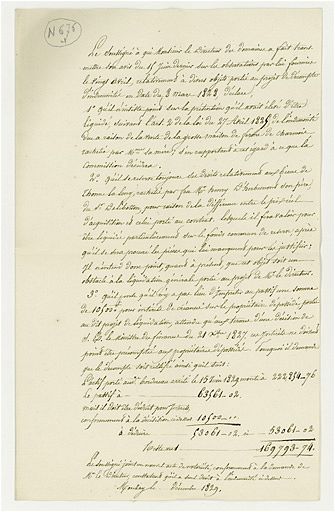 N 675
Le Soussigné à qui Monsieur le Directeur des domaines a fait trans-
mettre son avis du 15 Juin dernier sur les observations par lui fournies
le vingt avril, relativement à divers objets portés au projet de décompte
d'indemnité en date du 8 mars 1828 déclare:
1° qu'il n'insiste point sur la prétention qu'il avait élevé d'être
liquidé, suivant l'art. 2 de la loi du 27 Avril 1825 de l'indemnité
due à raison de la vente de la grosse maison de ferme de
rachetée par Mme sa mère, s'en rapportant à cet égard à ce que la
commission décidera.
2° qu'il se réserve toujours ses droits relativement aux biens de
Thonne la long, rachetés par feu Mr son père
du Sr pour raison de la différence entre le prix réel
d'acquisition et celui porté au contrat, lesquels il fera valoir pour
être liquidé particulièrement sur le fonds commun de réserve, après
qu'il se sera procuré les pièces qui lui manquent pour les justifier:
Il n'entend donc point quant à présent, que cet objet soit un
obstacle à la liquidation générale portée au projet de Mr le directeur.
3° qu'il pense qu'il n'y a pas lieu d'imputer au passif une somme
de 10500 pour intérêts de créances sur les propriétaires dépossédés portés
au dit projet de liquidation, attendu qu'aux termes d'une décision de
S. E. le Ministre des finances du 21 1827, ces intérêts ne doivent
point être précomptés aux propriétaires dépossédés. Pourquoi il demande
que le décompte soit rectifié ainsi qu'il suit:
L'actif porté au bordereau arrêté le 15 Juin 1829 monte à 222,854-76
Le passif à 63561-02.
mais il doit être déduit pour intérêts,
conformément à la décision ci-dessus 10500-00
à déduire 53061-02. ci - 53061-02.
Reste net 169793-74.
Le soussigné joint son acte de notoriété, conformément à la demande
de Mr le directeur, constatant qu'il a seul droit à l'indemnité ci-dessus.
le Décembre 1829.